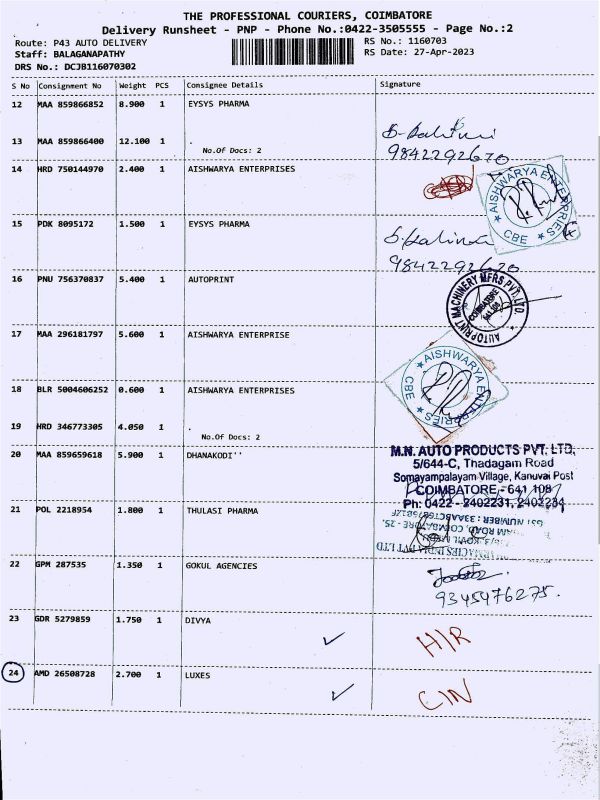 THE PROFESSIONAL COURIERS, COIMBATORE
Delivery Runsheet - PNP - Phone No.:0422-3505555 - Page No.:2
Route: P43 AUTO DELIVERY RS No.: 1160703
Staff: BALAGANAPATHY RS Date: 27-Apr-2023
DRS No.: DCJB116070302
S No Consignment No Weight PCS Consignee Details Signature
12 MAA 859866852 8.900 1 EYSYS PHARMA
13 MAA 859866400 12.100 1 .
No.Of Docs: 2
9842292670
14 HRD 750144970 2.400 1 AISHWARYA ENTERPRISES
AISHWARYA ENTERPRIES
CBE
15 PDK 8095172 1.500 1 EYSYS PHARMA
9842292670
16 PNU 756370837 5.400 1 AUTOPRINT
AUTOPRINT MACHINERY MFRS.PVT.LTD.
COIMBATORE
17 MAA 296181797 5.600 1 AISHWARYA ENTERPRISE
AISHWARYA ENTERPRIES
CBE
18 BLR 5004606252 0.600 1 AISHWARYA ENTERPRISES
19 HRD 346773305 4.050 1 .
No.Of Docs: 2
20 MAA 859659618 5.900 1 DHANAKODI''
M.N. AUTO PRODUCTS PVT. LTD,
5/644-C, Thadagam Road
Somayampalayam Village, Kanuvai Post
COIMBATORE - 641 108
Ph: 0422 - 2402231, 2402234
21 POL 2218954 1.800 1 THULASI PHARMA
22 GPM 287535 1.350 1 GOKUL AGENCIES
9345476275.
23 GDR 5279859 1.750 1 DIVYA
H/R
24 AMD 26508728 2.700 1 LUXES
C/N